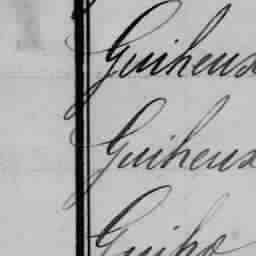 Guiheux
Guiheux
Guiho